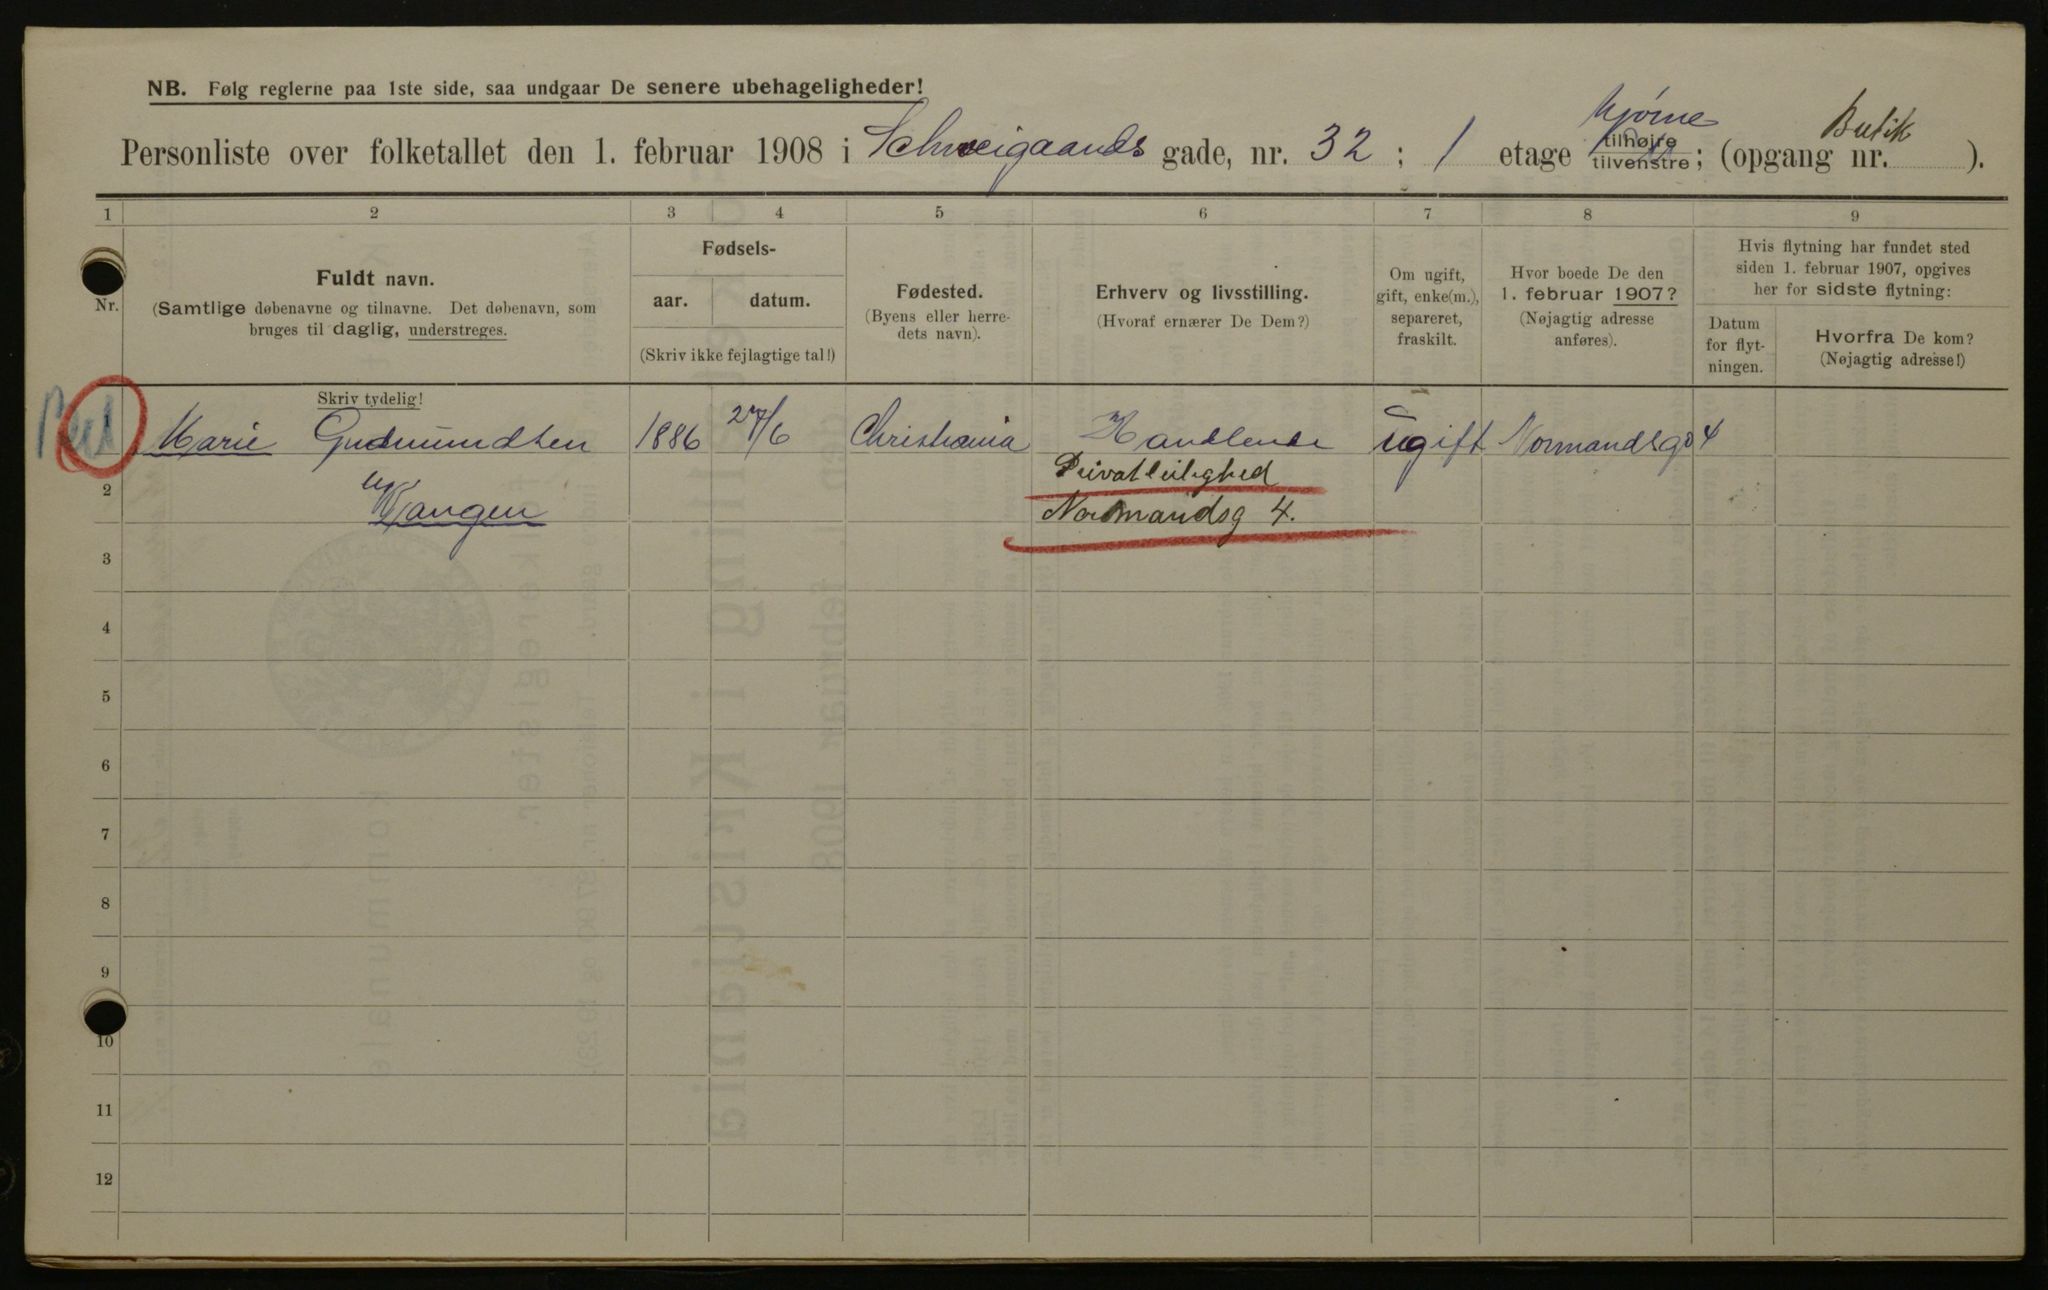 NB. Følg reglerne paa 1ste side, saa undgaar De senere ubehageligheder!
Personliste over folketallet den 1. februar 1908 i Schweigaards gade, nr. 32; 1 etage tilhøjre tilvenstre; hjørne (opgang nr. Butik ).
1 2 3 4 5 6 7 8 9
Nr.
Fuldt navn.
(Samtlige døbenavne og tilnavne. Det døbenavn, som
bruges til daglig, understreges.
Fødsels-
aar. datum.
(Skriv ikke fejlagtige tal!)
Fødested.
(Byens eller herre-
dets navn).
Erhverv og livsstilling.
(Hvoraf ernærer De Dem?)
Om ugift,
gift, enke(m.),
separeret,
fraskilt.
Hvor boede De den
1. februar 1907?
(Nøjagtig adresse
anføres).
Hvis flytning har fundet sted
siden 1. februar 1907, opgives
her for sidste flytning:
Datum
for flyt-
ningen.
Hvorfra De kom?
(Nøjagtig adresse!)
Skriv tydelig!
1 Marie Gudmundsen 1886 27/6 Christiania Handlende ugift Normandsg 4
Privatleilighed
2 Wangen Normandsg 4.
3
4
5
6
7
8
9
10
11
12